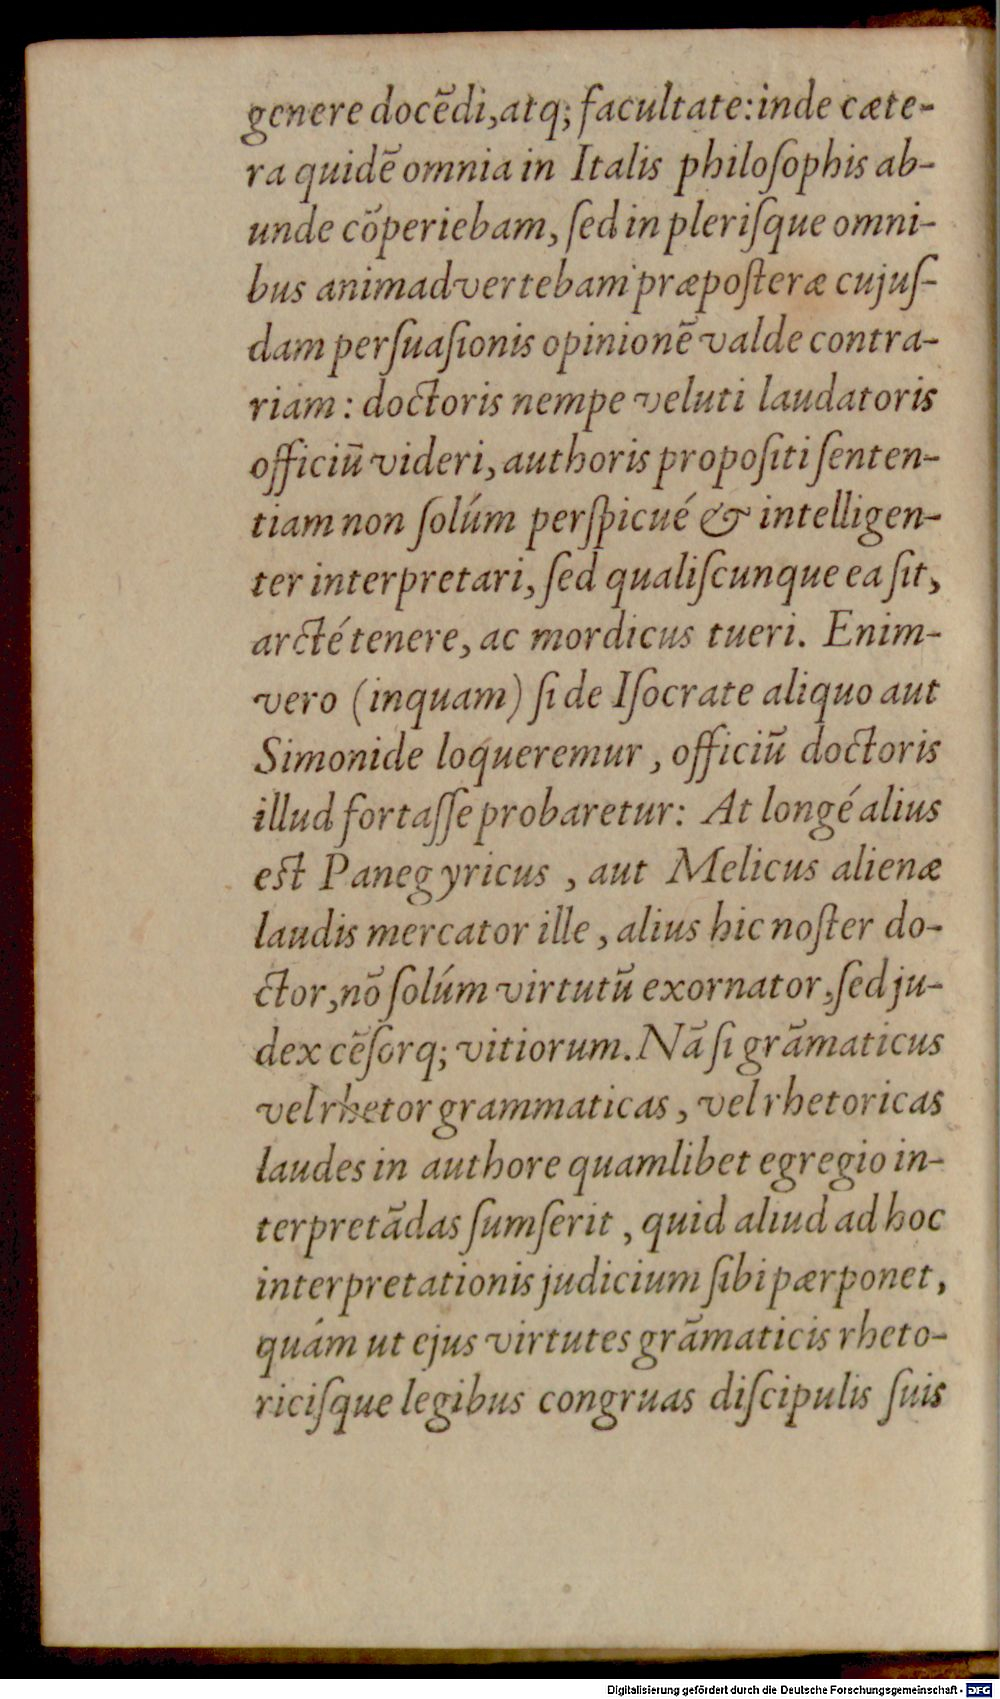 genere docẽdi, atq; facultate: inde cæte-
ra quidẽ omnia in Italis philoſophis ab-
unde cõperiebam, ſed in pleriſque omni-
bus animadvertebam præpoſteræ cujuſ-
dam perſuaſionis opinionẽ valde contra-
riam: doctoris nempe veluti laudatoris
officiũ videri, authoris propoſiti ſenten-
tiam non ſolúm perſpicué & intelligen-
ter interpretari, ſed qualiſcunque ea ſit,
arcté tenere, ac mordicus tueri. Enim-
vero (inquam) ſi de Iſocrate aliquo aut
Simonide loqueremur, officiũ doctoris
illud fortaſſe probaretur: At longé alius
est Panegyricus, aut Melicus alienæ
laudis mercator ille, alius hic noſter do-
ctor, nõ ſolúm virtutũ exornator, ſed ju-
dex cẽſorq; vitiorum. Nã ſi grãmaticus
vel rhetor grammaticas, vel rhetoricas
laudes in authore quamlibet egregio in-
terpretãdas ſumſerit, quid aliud ad hoc
interpretationis judicium ſibi pærponet,
quám ut ejus virtutes grãmaticis rheto-
riciſque legibus congruas diſcipulis ſuis
Digitalisierung gefördert durch die Deutsche Forschungsgemeinschaft - DFG